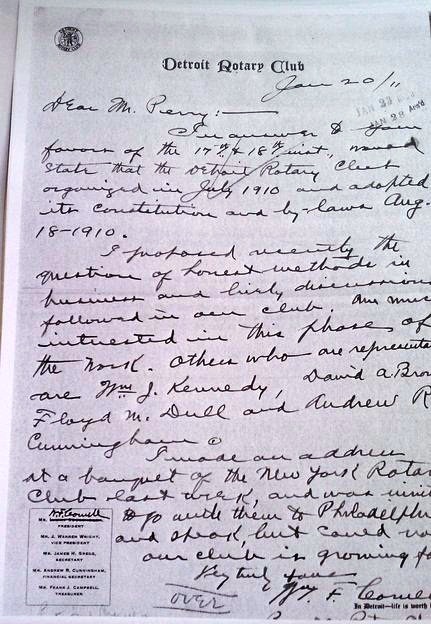 Detroit Rotary Club
Jan 20/11
Dear Mr. Perry:—
In answer to your
favors of the 17th & 18th inst, would
State that the Detroit Rotary Club
organized in July 1910 and adopted
its constitution and by-laws Aug.
18-1910.
I proposed recently the
question of honest methods in
business and lively discussions
followed in our club. Am much
interested in this phase of
the work. Others who are
are Wm J. Kennedy, David A.
Floyd M. Dull and Andrew R
Cunningham.
I made an address
at a banquet of the New York
Club last week, and was
to go with them to
and speak, but could
our club is growing
Very truly yours
Wm F.
OVER
MR.
PRESIDENT
MR. J. WARREN WRIGHT,
VICE PRESIDENT
MR. JAMES H. GREGG,
SECRETARY
MR. ANDREW R. CUNNINGHAM,
FINANCIAL SECRETARY
MR. FRANK J. CAMPBELL
TREASURER
In Detroit—life is worth
JAN 23
JAN 28 Ans'd